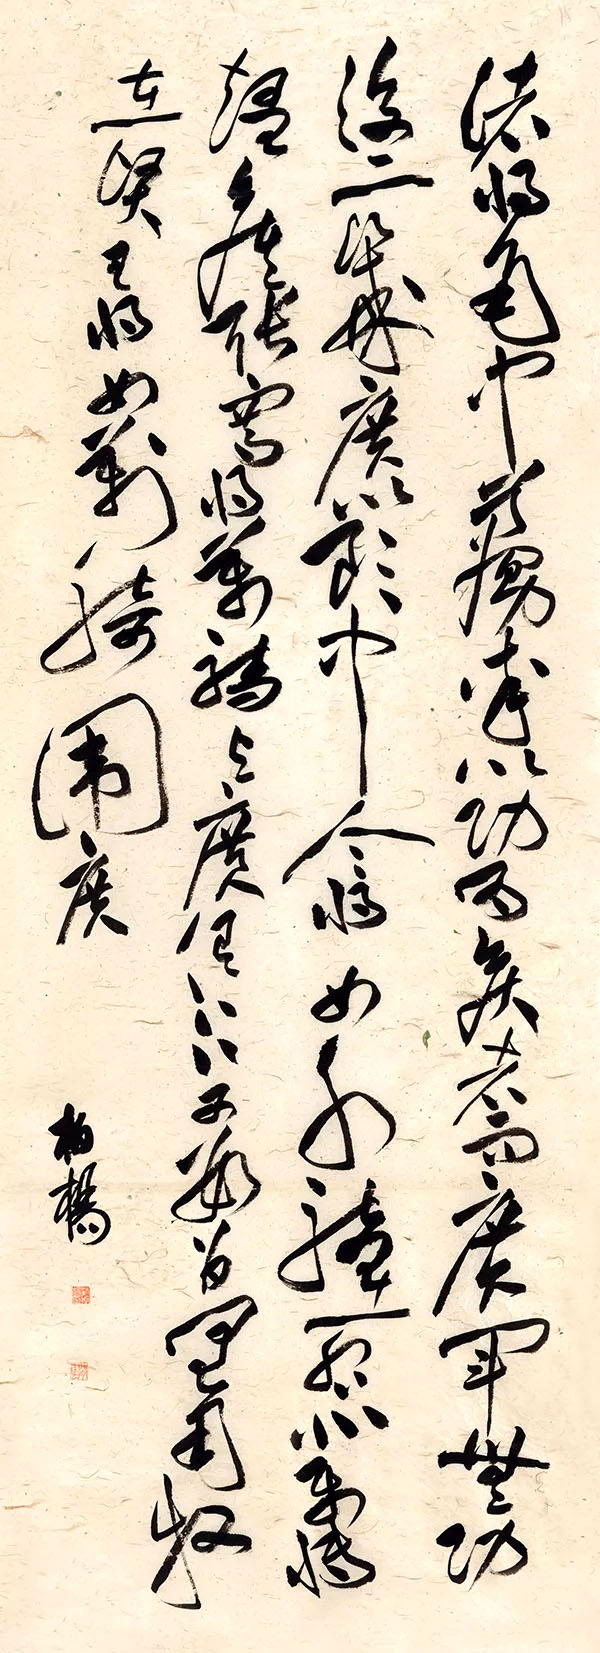 諸將多中首虜率以功為侯者而廣軍無功
後二歲廣以郎中令將四千騎出右北平博
望侯張騫將萬騎與廣俱行可數百里匈奴
左賢王將四萬騎圍廣
柏楊